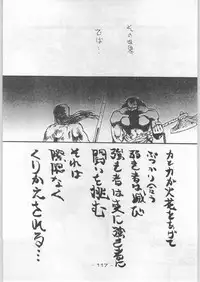 その世界
では…
力と力が火花をあげて
ぶつかり合う
弱き者は滅び
強き者は更に強き者に
闘いを挑む
それは
際限なく
くりかえされる…